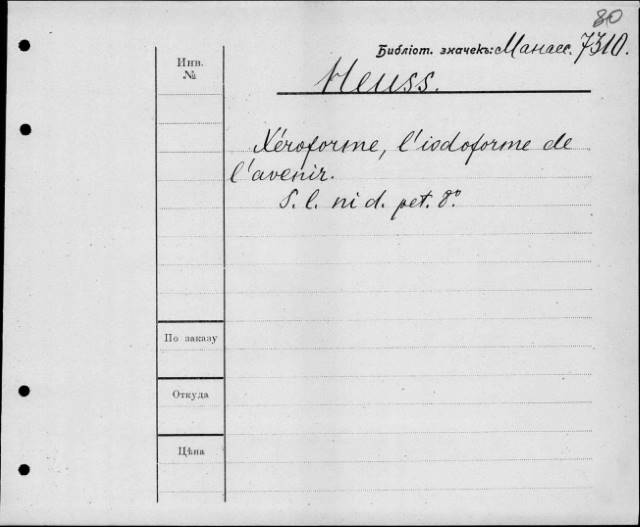 80
Библіот. значекъ: Манасс. 7310.
Инв.
№
Heuss.
Xéroforme, l'iodoforme de
l'avenir.
S. l. ni d. pet. 8°.
По заказу
Откуда
Цѣна